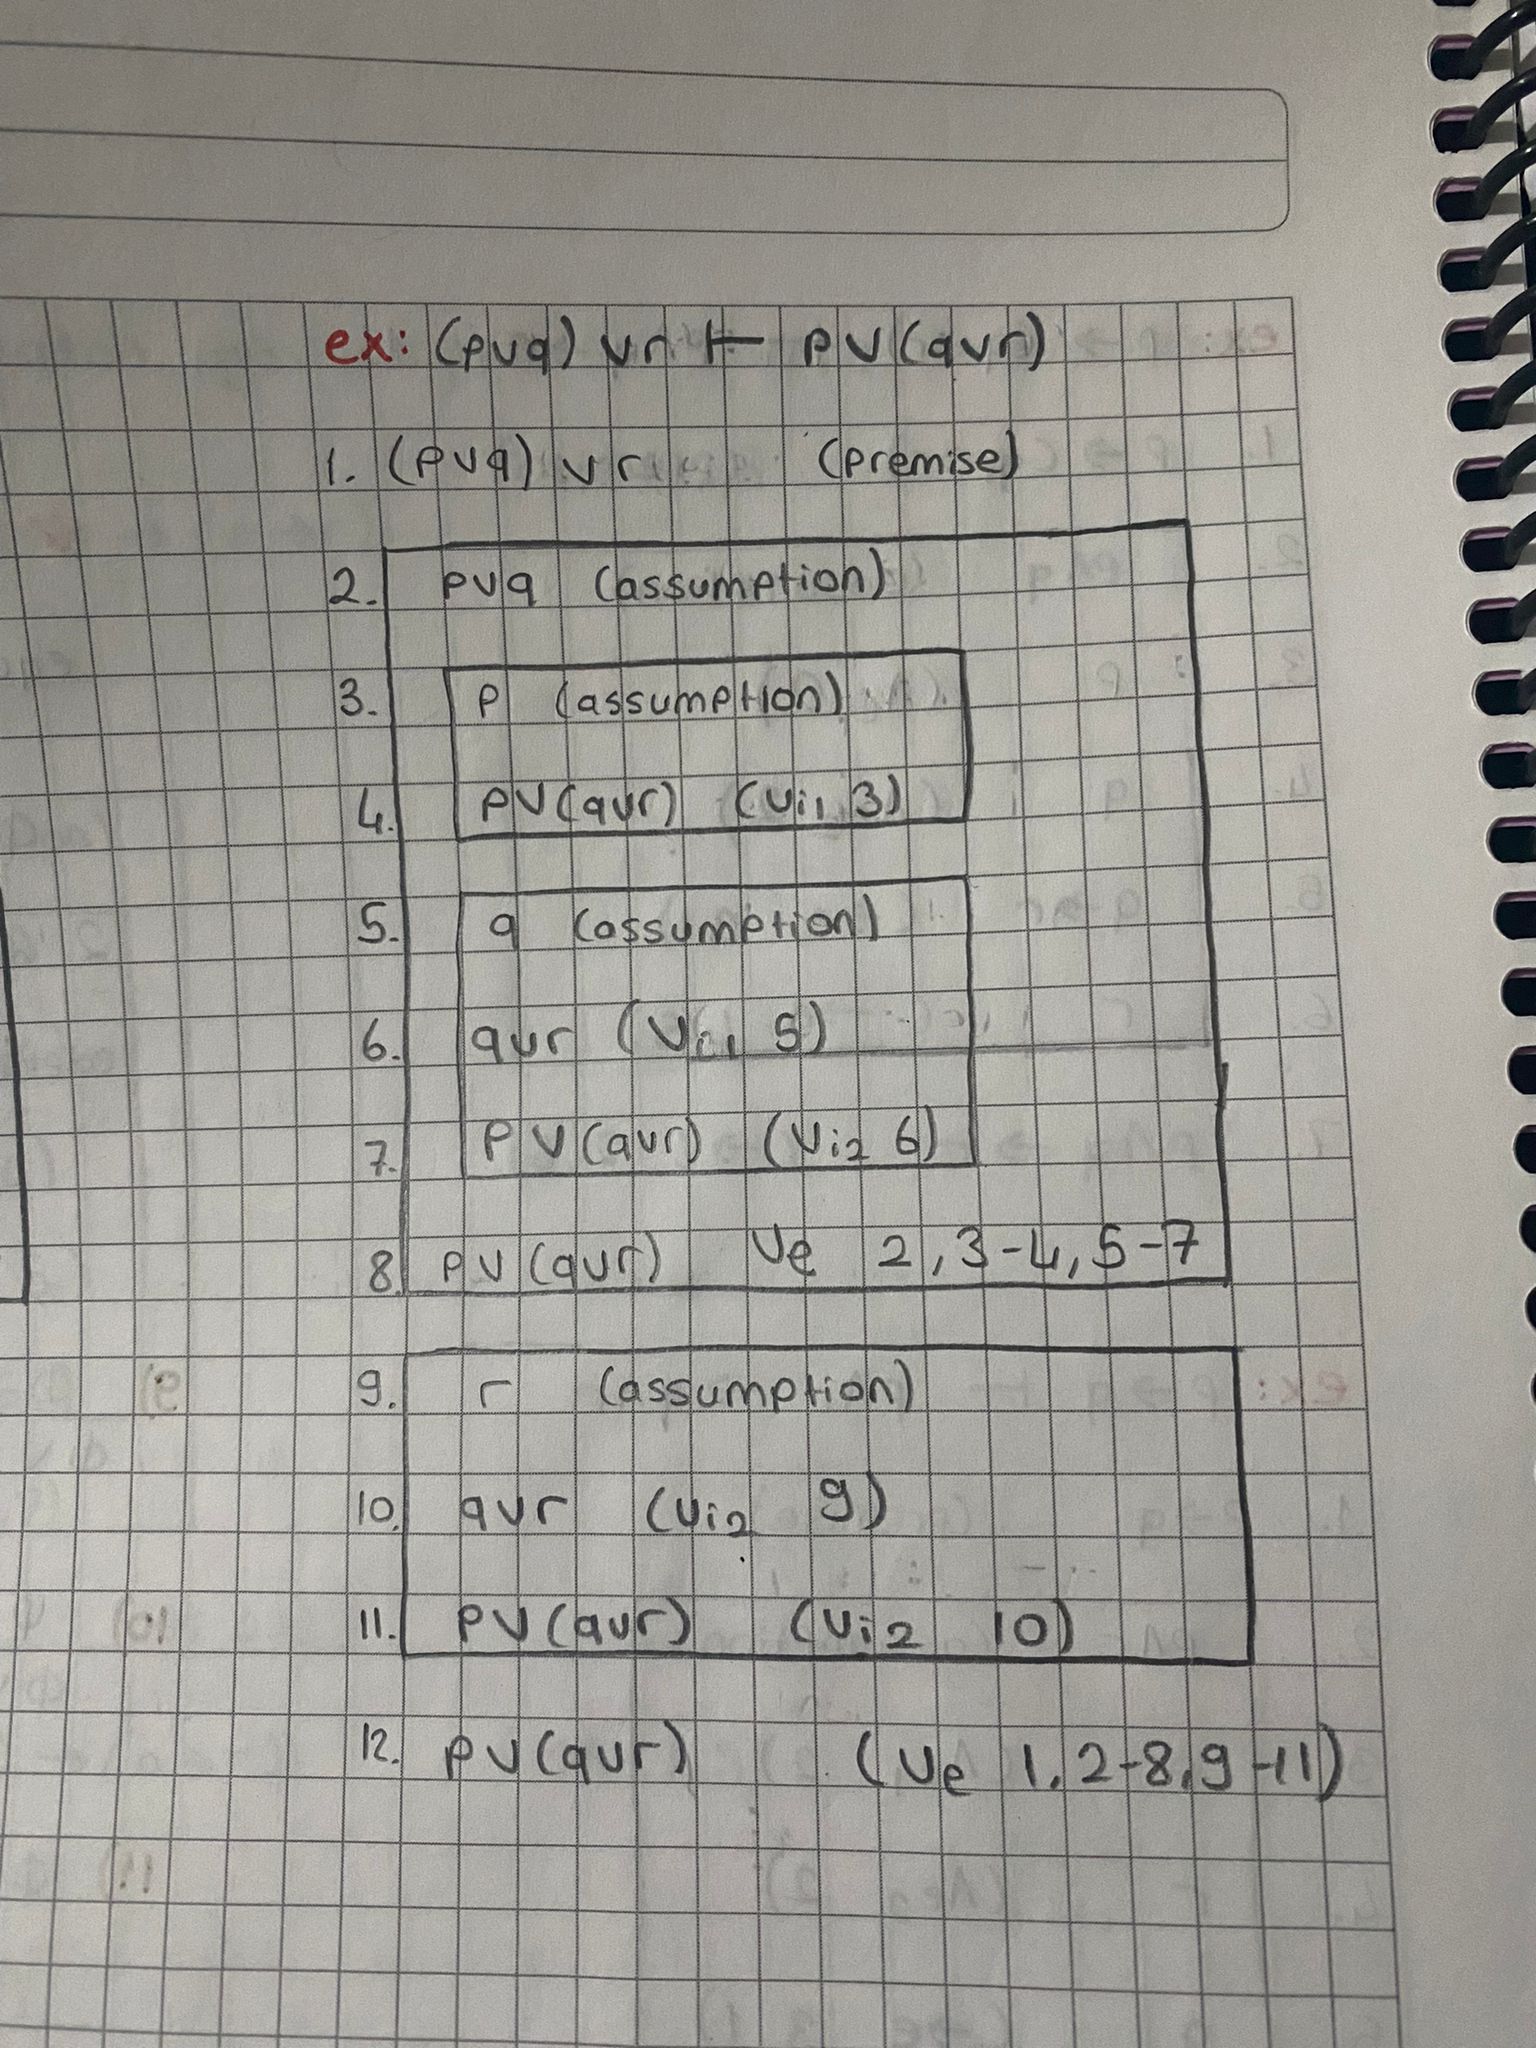 ex: (pvq) vr ⊢ pv(qvr)
1. (pvq) vr (premise)
2. pvq (assumption)
3. p (assumption)
4. pv(qvr) (vi1 3)
5. q (assumption)
6. qvr (vi1 5)
7. pv(qvr) (vi2 6)
8. pv(qvr) ve 2,3-4,5-7
9. r (assumption)
10. qvr (vi2 9)
11. pv(qvr) (vi2 10)
12. pv(qvr) (ve 1,2-8,9-11)